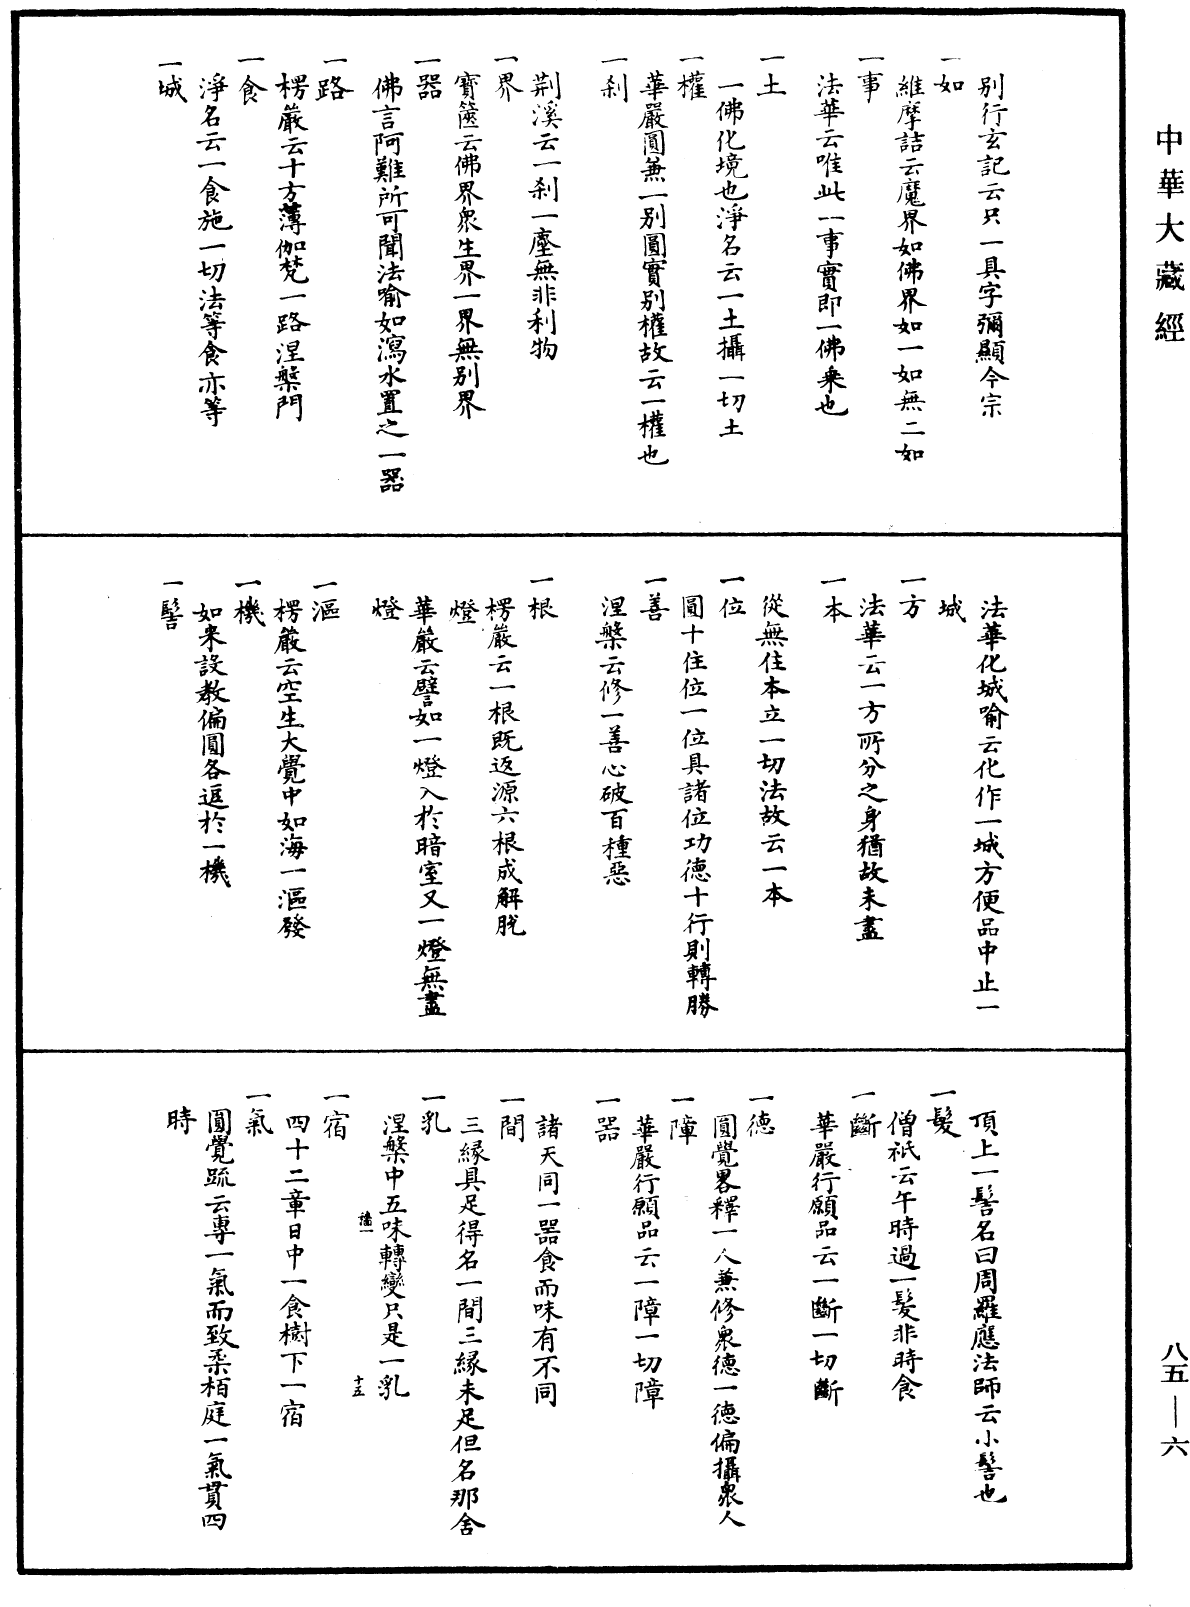 中華大藏經
別行玄記云只一具字彌顯今宗
一如
維摩詰云魔界如佛界如一如無二如
一事
法華云唯此一事實即一佛乗也
一土
一佛化境也淨名云一土攝一切土
一權
華嚴圓兼一別圓實別權故云一權也
一刹
荆溪云一刹一塵無非利物
一界
寶篋云佛界衆生界一界無別界
一器
佛言阿難所可聞法喻如瀉水置之一器
一路
楞嚴云十方薄伽梵一路涅槃門
一食
淨名云一食施一切法等食亦等
一城
法華化城喻云化作一城方便品中止一
城
一方
法華云一方所分之身猶故未盡
一本
從無住本立一切法故云一本
一位
圓十住位一位具諸位功德十行則轉勝
一善
涅槃云修一善心破百種惡
一根
楞嚴云一根既返源六根成解脫
燈
華嚴云譬如一燈入於暗室又一燈無盡
燈
一漚
楞嚴云空生大覺中如海一漚發
一機
如來設教偏圓各逗於一機
一髻
頂上一髻名曰周羅應法師云小髻也
一髮
僧祇云午時過一髮非時食
一斷
華嚴行願品云一斷一切斷
一德
圓覺畧釋一人兼修衆德一德偏攝衆人
一障
華嚴行願品云一障一切障
一器
諸天同一器食而味有不同
一間
三緣具足得名一間三緣未足但名那舍
一乳
涅槃中五味轉變只是一乳
十五
一宿
四十二章日中一食樹下一宿
一氣
圓覺疏云專一氣而致柔栢庭一氣貫四
時
八五—六